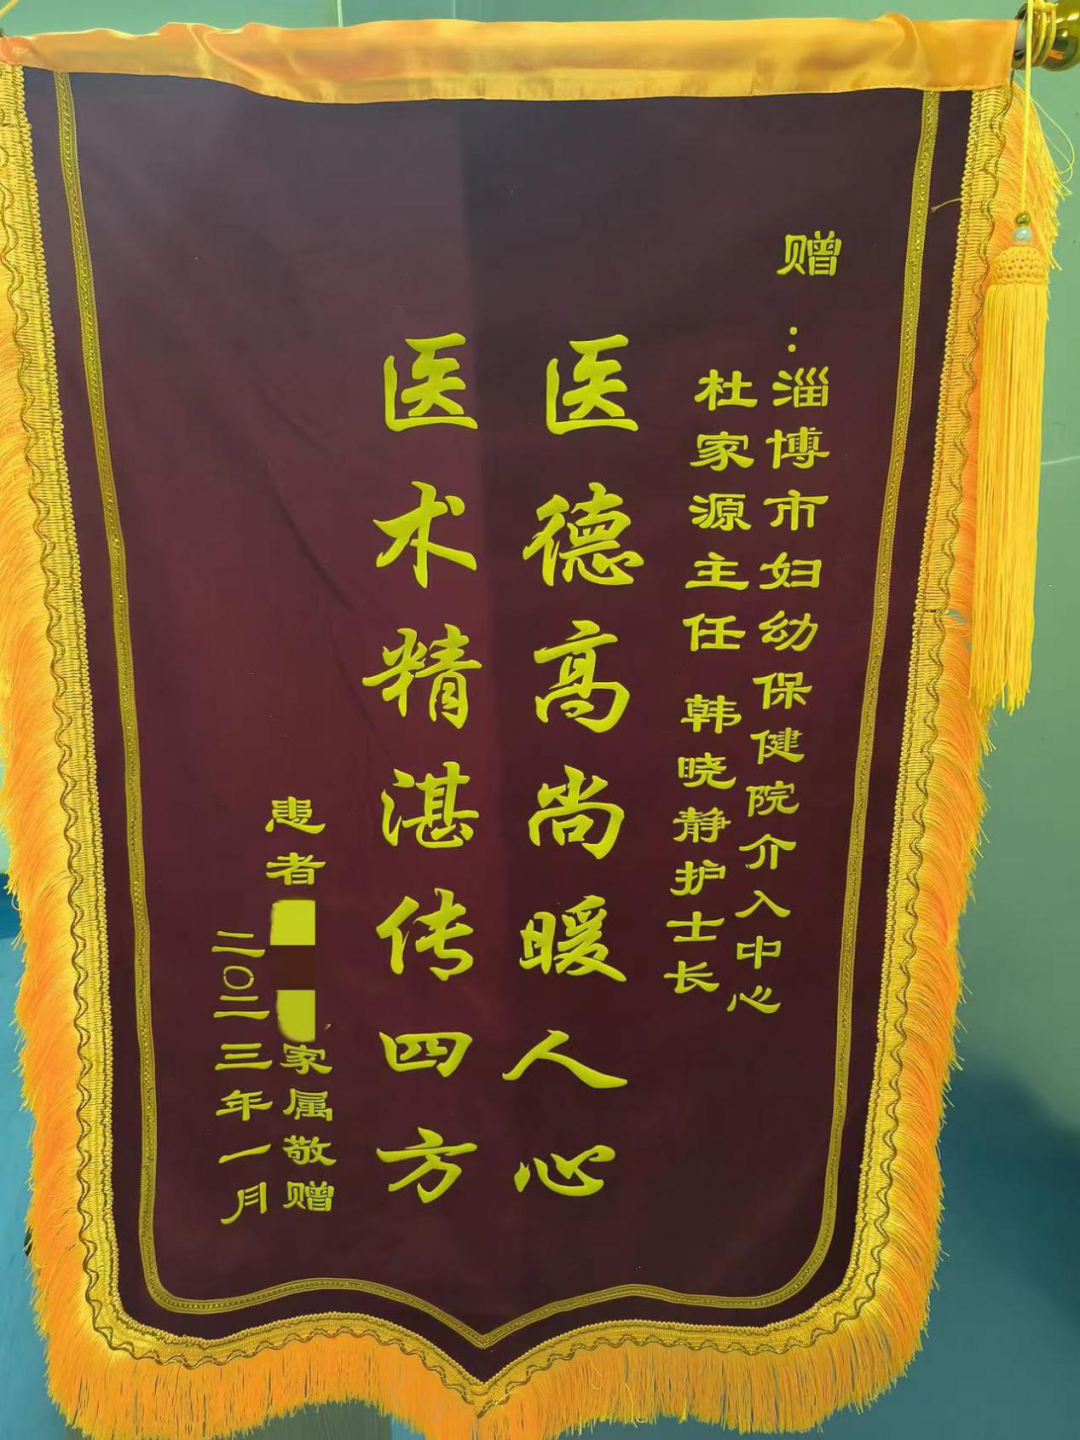 赠：淄博市妇幼保健院介入中心
杜家源主任 韩晓静护士长
医德高尚暖人心
医术精湛传四方
患者 家属敬赠
二〇二三年一月